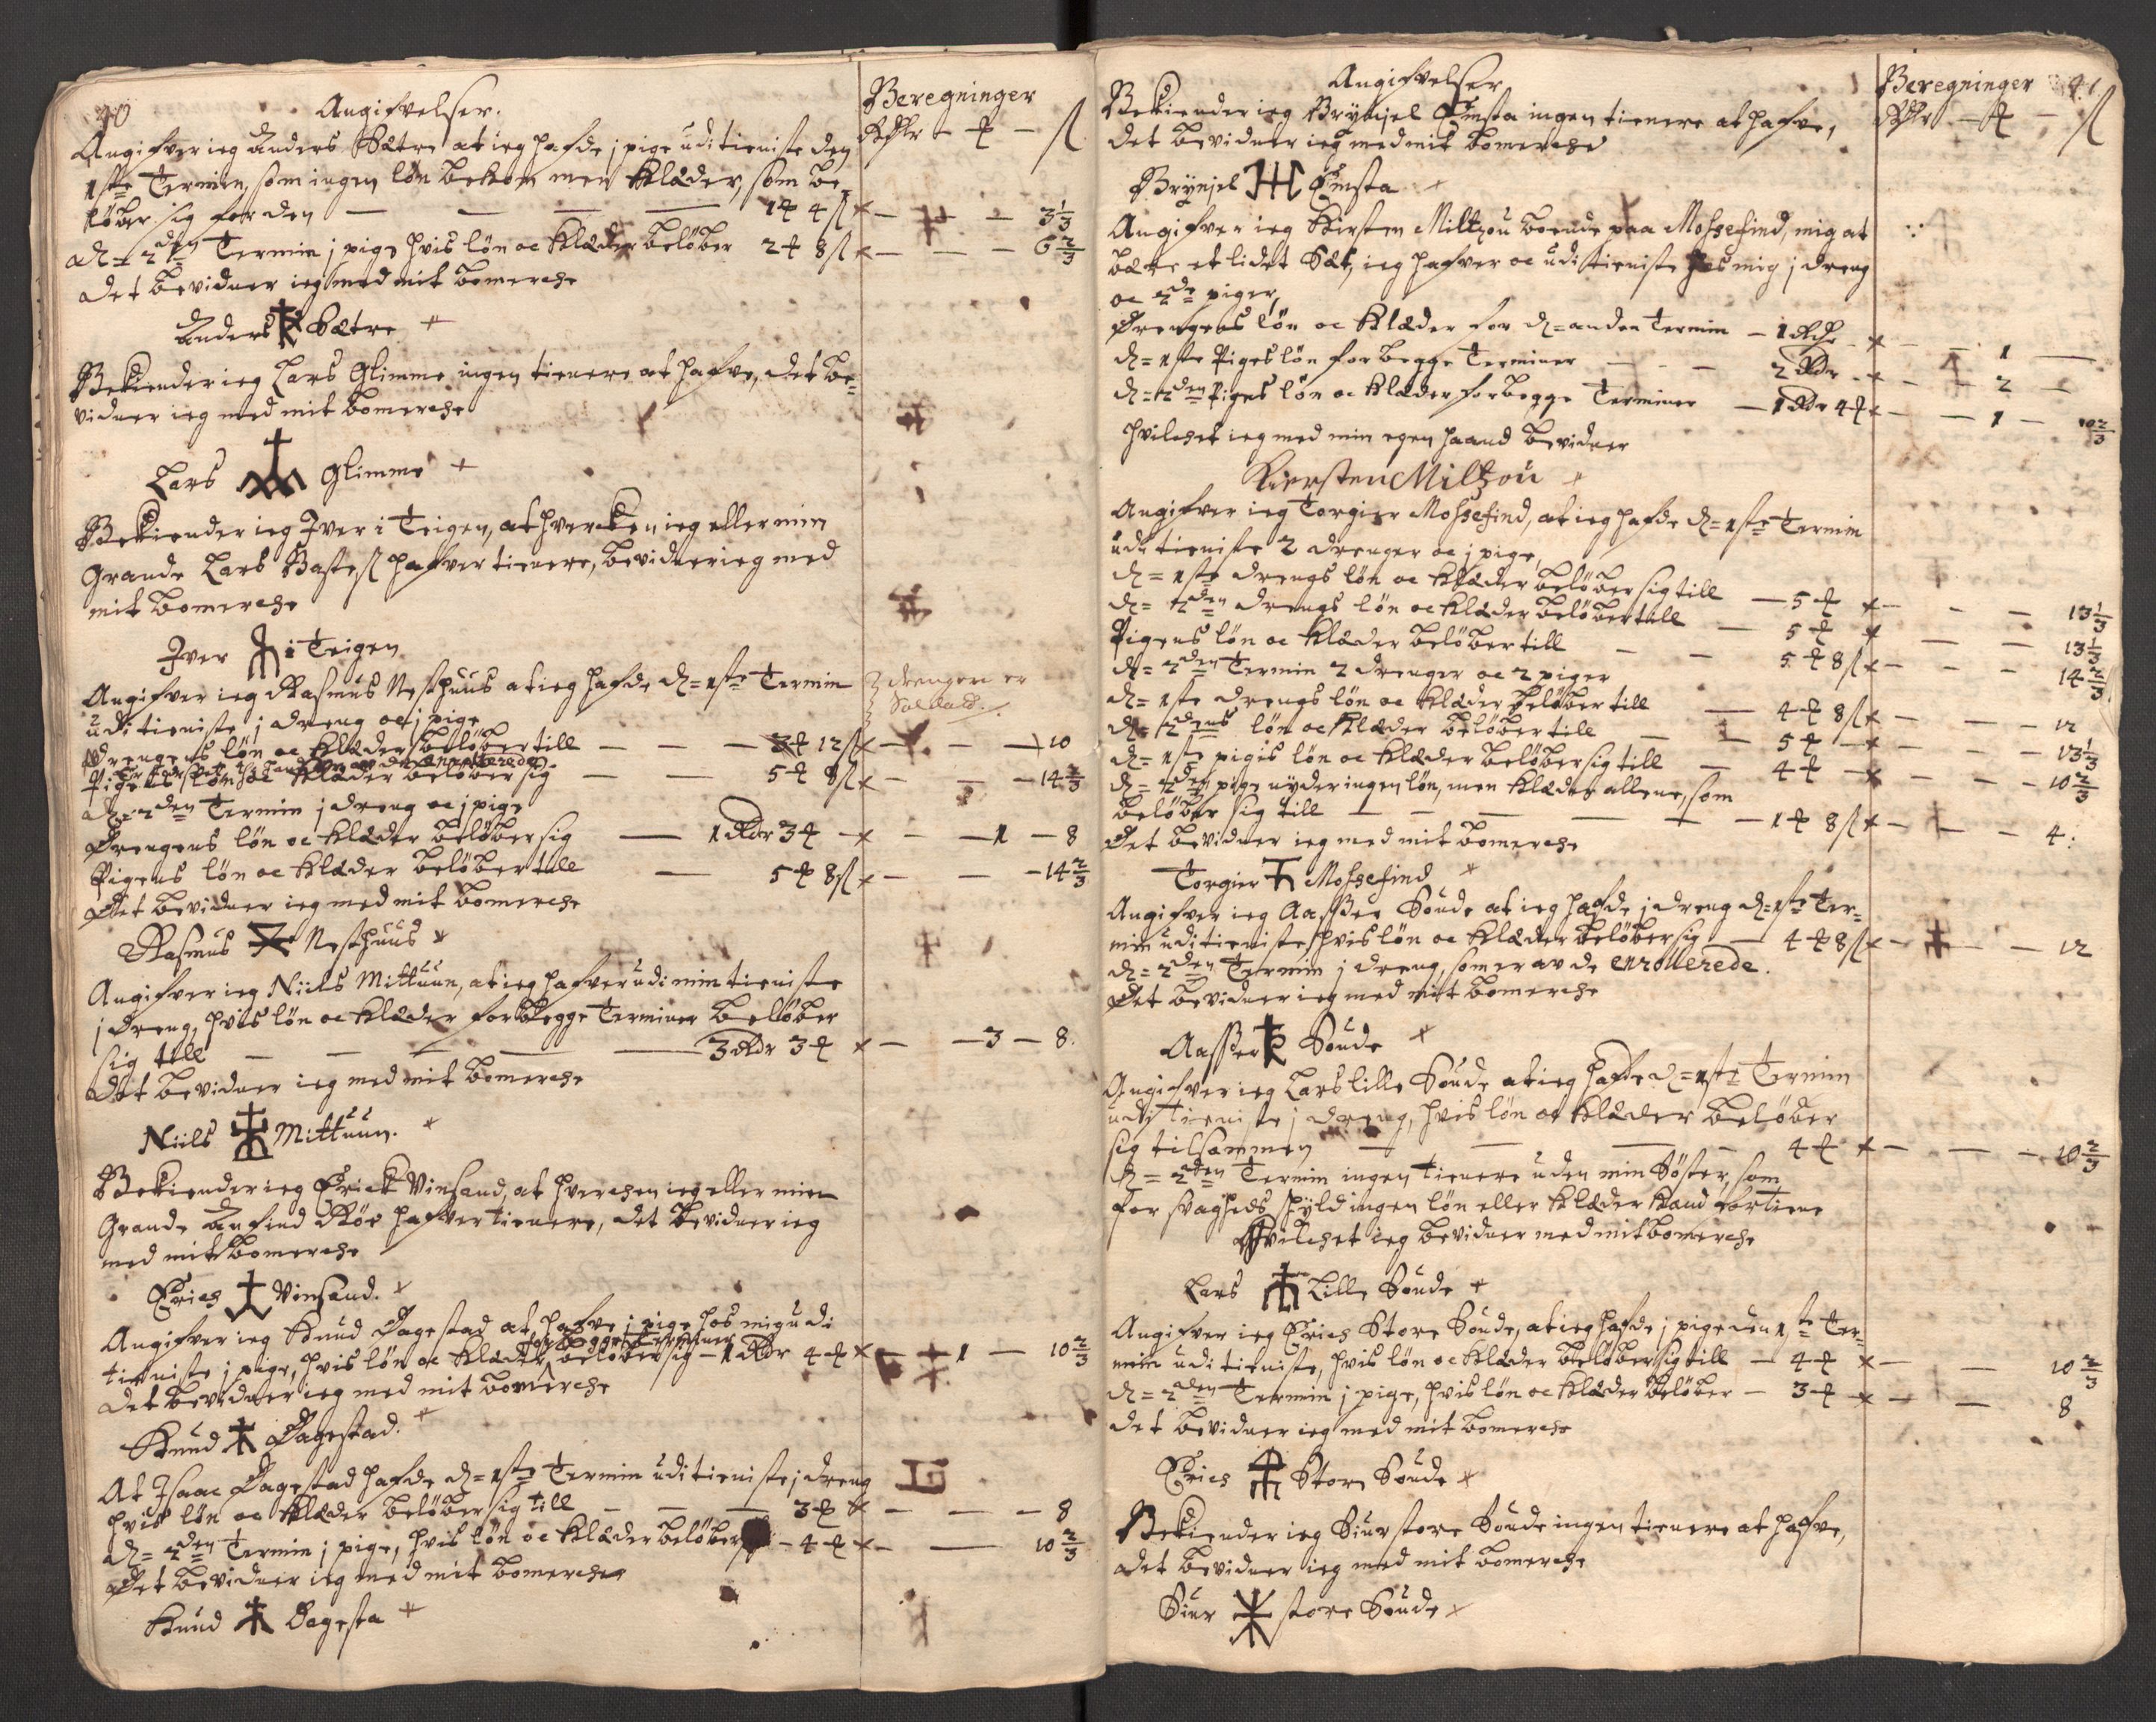 40
Angifvelser.
Beregninger
Rdlr - ₰ - ſl
Angifver ieg Anders Sætre at ieg hafde j pige udi tieniste den
1ste Termin, som ingen løn bekom men Klæder, som be-
løber sig for den — 1 ₰ 4 ſl × — 3 1/3
D= 2den Termin j pige hvis løn oc Klæder beløber 2 ₰ 8 ſl × — 6 2/3
Det bevidner ieg med mit bomerche
Anders Sætre
Bekiender ieg Lars Glimme ingen tienere at hafve, det be-
vidner ieg med mit bomerche
Lars Glimme
Bekiender ieg Iver i Teigen, at hvercken ieg eller min
Grande Lars Bastesl hafver tienere, bevidner ieg med
mit bomerche
Iver i Teigen
Angifver ieg Rasmus Nesthuus at ieg hafde d= 1ste Termin
drengen er
udi tieniste j dreng oc j pige
Soldat.
Drengens løn oc Klæder beløber till — 3 ₰ 12 ſl × — 10
Pigens løn oc Klæder beløber sig — 5 ₰ 8 ſl × — 14 2/3
D= 2den Termin j dreng oc j pige
Drengens løn oc Klæder beløber sig — 1 Rdr 3 ₰ × — 1 — 8
Pigens løn oc Klæder beløber till — 5 ₰ 8 ſl × — 14 2/3
Det bevidner ieg med mit bomerche
Rasmus Nesthuus
Angifver ieg Niils Mittuun, at ieg hafver udi min tieniste
j dreng, hvis løn oc Klæder for begge Terminer beløber
sig till — 3 Rdr 3 ₰ × — 3 — 8.
Det bevidner ieg med mit bomerche
Niils Mittuun.
Bekiender ieg Erick Vinsand, at hverchen ieg eller min
Grande Anfind Röe hafver tienere, det bevidner ieg
med mit bomerche
Erich Vinsand.
Angifver ieg Knud Dagestad at hafve j pige hos mig udi
for begge Terminer
tieniste j pige, hvis løn oc Klæder, beløber sig — 1 Rdr 4 ₰ × — 1 — 10 2/3
Det bevidner ieg med mit bomerche
Knud Dagestad.
At Isaac Dagestad hafde d= 1ste Termin udi tieniste j dreng
hvis løn oc Klæder beløber sig till — 3 ₰ × — 8
D= 2den Termin j pige, hvis løn oc Klæder beløber — 4 ₰ × — 10 2/3
Det bevidner ieg med mit bomerche
Knud Dagesta
Angifvelser
Beregninger 41
Rdlr - ₰ - ſl
Bekiender ieg Brynjel Emsta ingen tienere at hafve,
det bevidner ieg med mit bomerche
Brynjel Emsta
Angifver ieg Kirsten Miltzou boende paa Mossefind, mig at
bære et lidet Sæt, ieg hafver oc udi tieniste hos mig j dreng
oc 2de piger,
Drengens løn oc Klæder for d= anden Termin — 1 Rdr × — 1 —
D= 1ste Piges løn for begge Terminer — 2 Rdr × — 2 —
D= 2den Piges løn oc Klæder for begge Terminer — 1 Rdr 4 ₰ × — 1 — 10 2/3
hvilchet ieg med min egen haand bevidner
Kiersten Miltzou
Angifver ieg Torgier Mossefind, at ieg hafde d= 1ste Termin
udi tieniste 2 drenger oc j pige,
D= 1ste drengs løn oc Klæder beløber sig till — 5 ₰ × — 13 1/3
D= 2den drengs løn oc Klæder beløber till — 5 ₰ × — 13 1/3
Pigens løn oc Klæder beløber till — 5 ₰ 8 ſl × — 14 2/3
D= 2den Termin 2 drenger oc 2 piger
D= 1ste drengs løn oc Klæder beløber till — 4 ₰ 8 ſl × — 12
D= 2dens løn oc Klæder beløber till — 5 ₰ × — 13 1/3
D= 1ste piges løn oc Klæder beløber sig till — 4 ₰ × — 10 2/3
D= 2den pige nyder ingen løn, men Klæder allene, som
beløber sig till — 1 ₰ 8 ſl × — 4.
Det bevidner ieg med mit bomerche
Torgier Mossefind
Angifver ieg Aasser Soude at ieg hafde j dreng d= 1ste Ter-
min udi tieniste, hvis løn oc Klæder beløber sig — 4 ₰ 8 ſl × — 12
D= 2den Termin j dreng, som er av de enrollerede.
Det bevidner ieg med mit bomerche
Aasser Soude
Angifver ieg Lars lille Soude at ieg hafde d= 1ste Termin
udi tieniste j dreng, hvis løn oc Klæder beløber
sig tilsammen — 4 ₰ × — 10 2/3
D= 2den Termin ingen tienere uden min Søster, som
for svagheds skyld ingen løn eller Klæder kand fortiene
Hvilchet ieg bevidner med mit bomerche
Lars Lille Soude
Angifver ieg Erich Store Soude, at ieg hafde j pige den 1ste Ter-
min udi tieniste, hvis løn oc Klæder beløber sig till — 4 ₰ × — 10 2/3
D= 2den Termin j pige, hvis løn oc Klæder beløber — 3 ₰ × — 8
Det bevidner ieg med mit bomerche
Erich Store Soude
Bekiender ieg Siur store Soude ingen tienere at hafve,
det bevidner ieg med mit bomerche
Siur store Soude